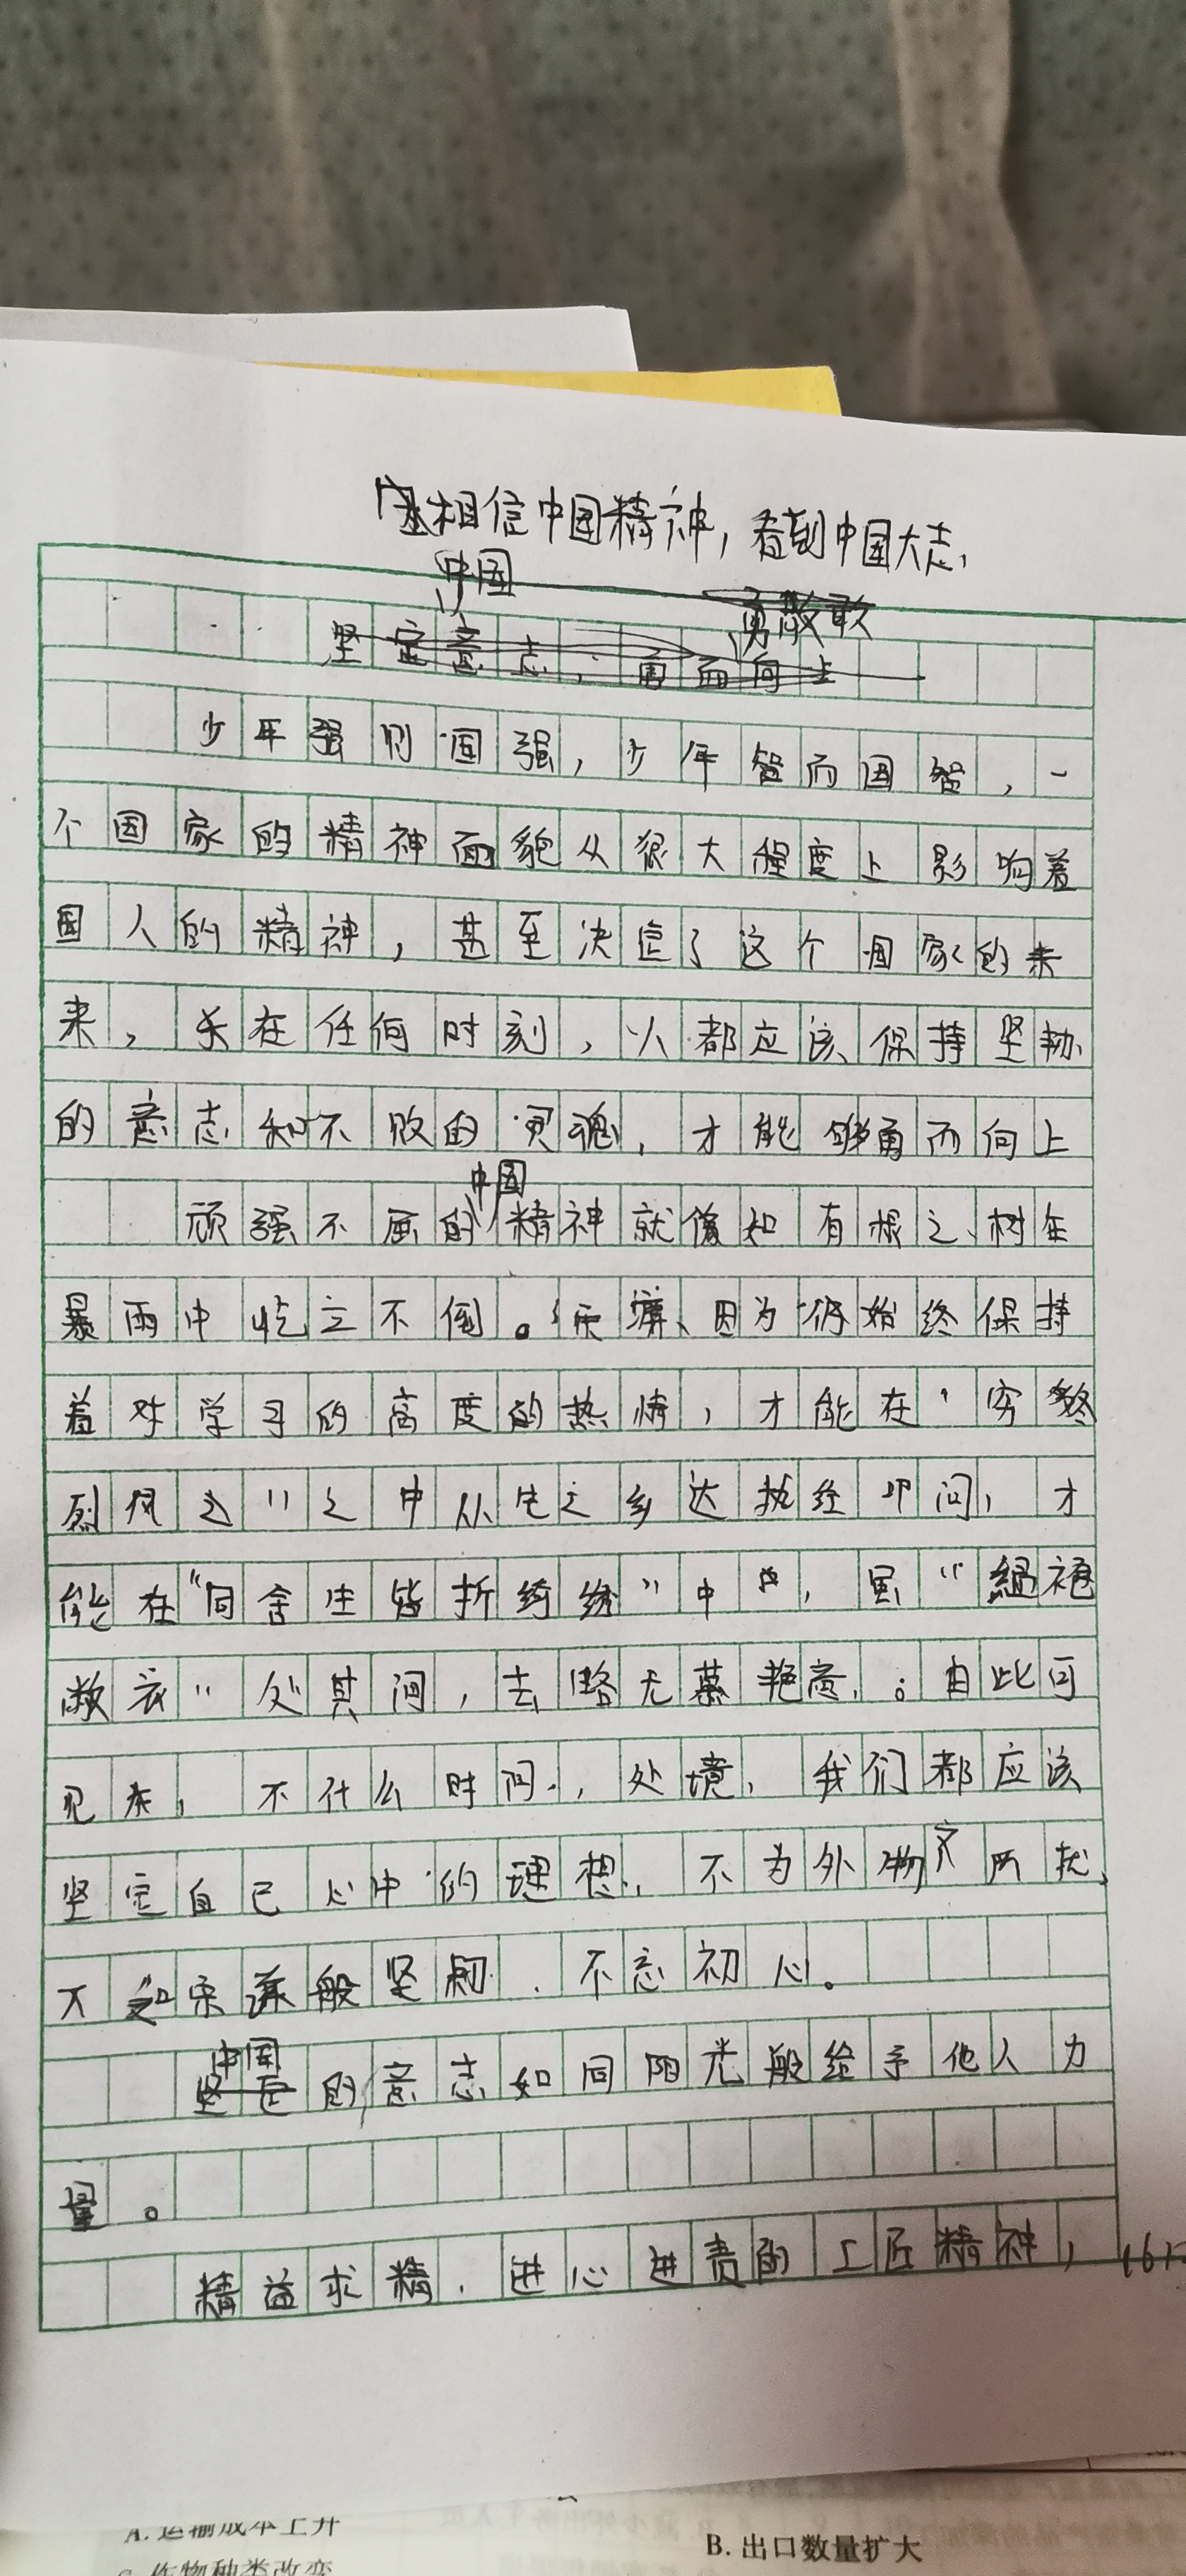 相信中国精神，看到中国大志，
中国
勇敢
坚定意志，勇而向上
少年强则国强，少年智而国智，一
个国家的精神面貌从很大程度上影响着
国人的精神，甚至决定了这个国家的未
来，在任何时刻，都应该保持坚韧
的意志和不败的灵魂，才能够勇而向上
中国
顽强不屈的精神就像如有根之树在
暴雨中屹立不倒。宋濂因为始终保持
着对学习的高度的热情，才能在"穷冬
烈风之"之中从先之乡达执经叩问，才
能在"同舍生皆折绮绣"中，虽"縕袍
敝衣"处其间，去略无慕艳意。由此可
见，不什么时间，处境，我们都应该
坚定自己心中的理想，不为外物所扰
如宋濂般坚韧，不忘初心。
中国
坚定的意志如同阳光般给予他人力
量。
精益求精，进心进责的工匠精神，
A.运输成本上升
B.出口数量扩大
作物种类改变